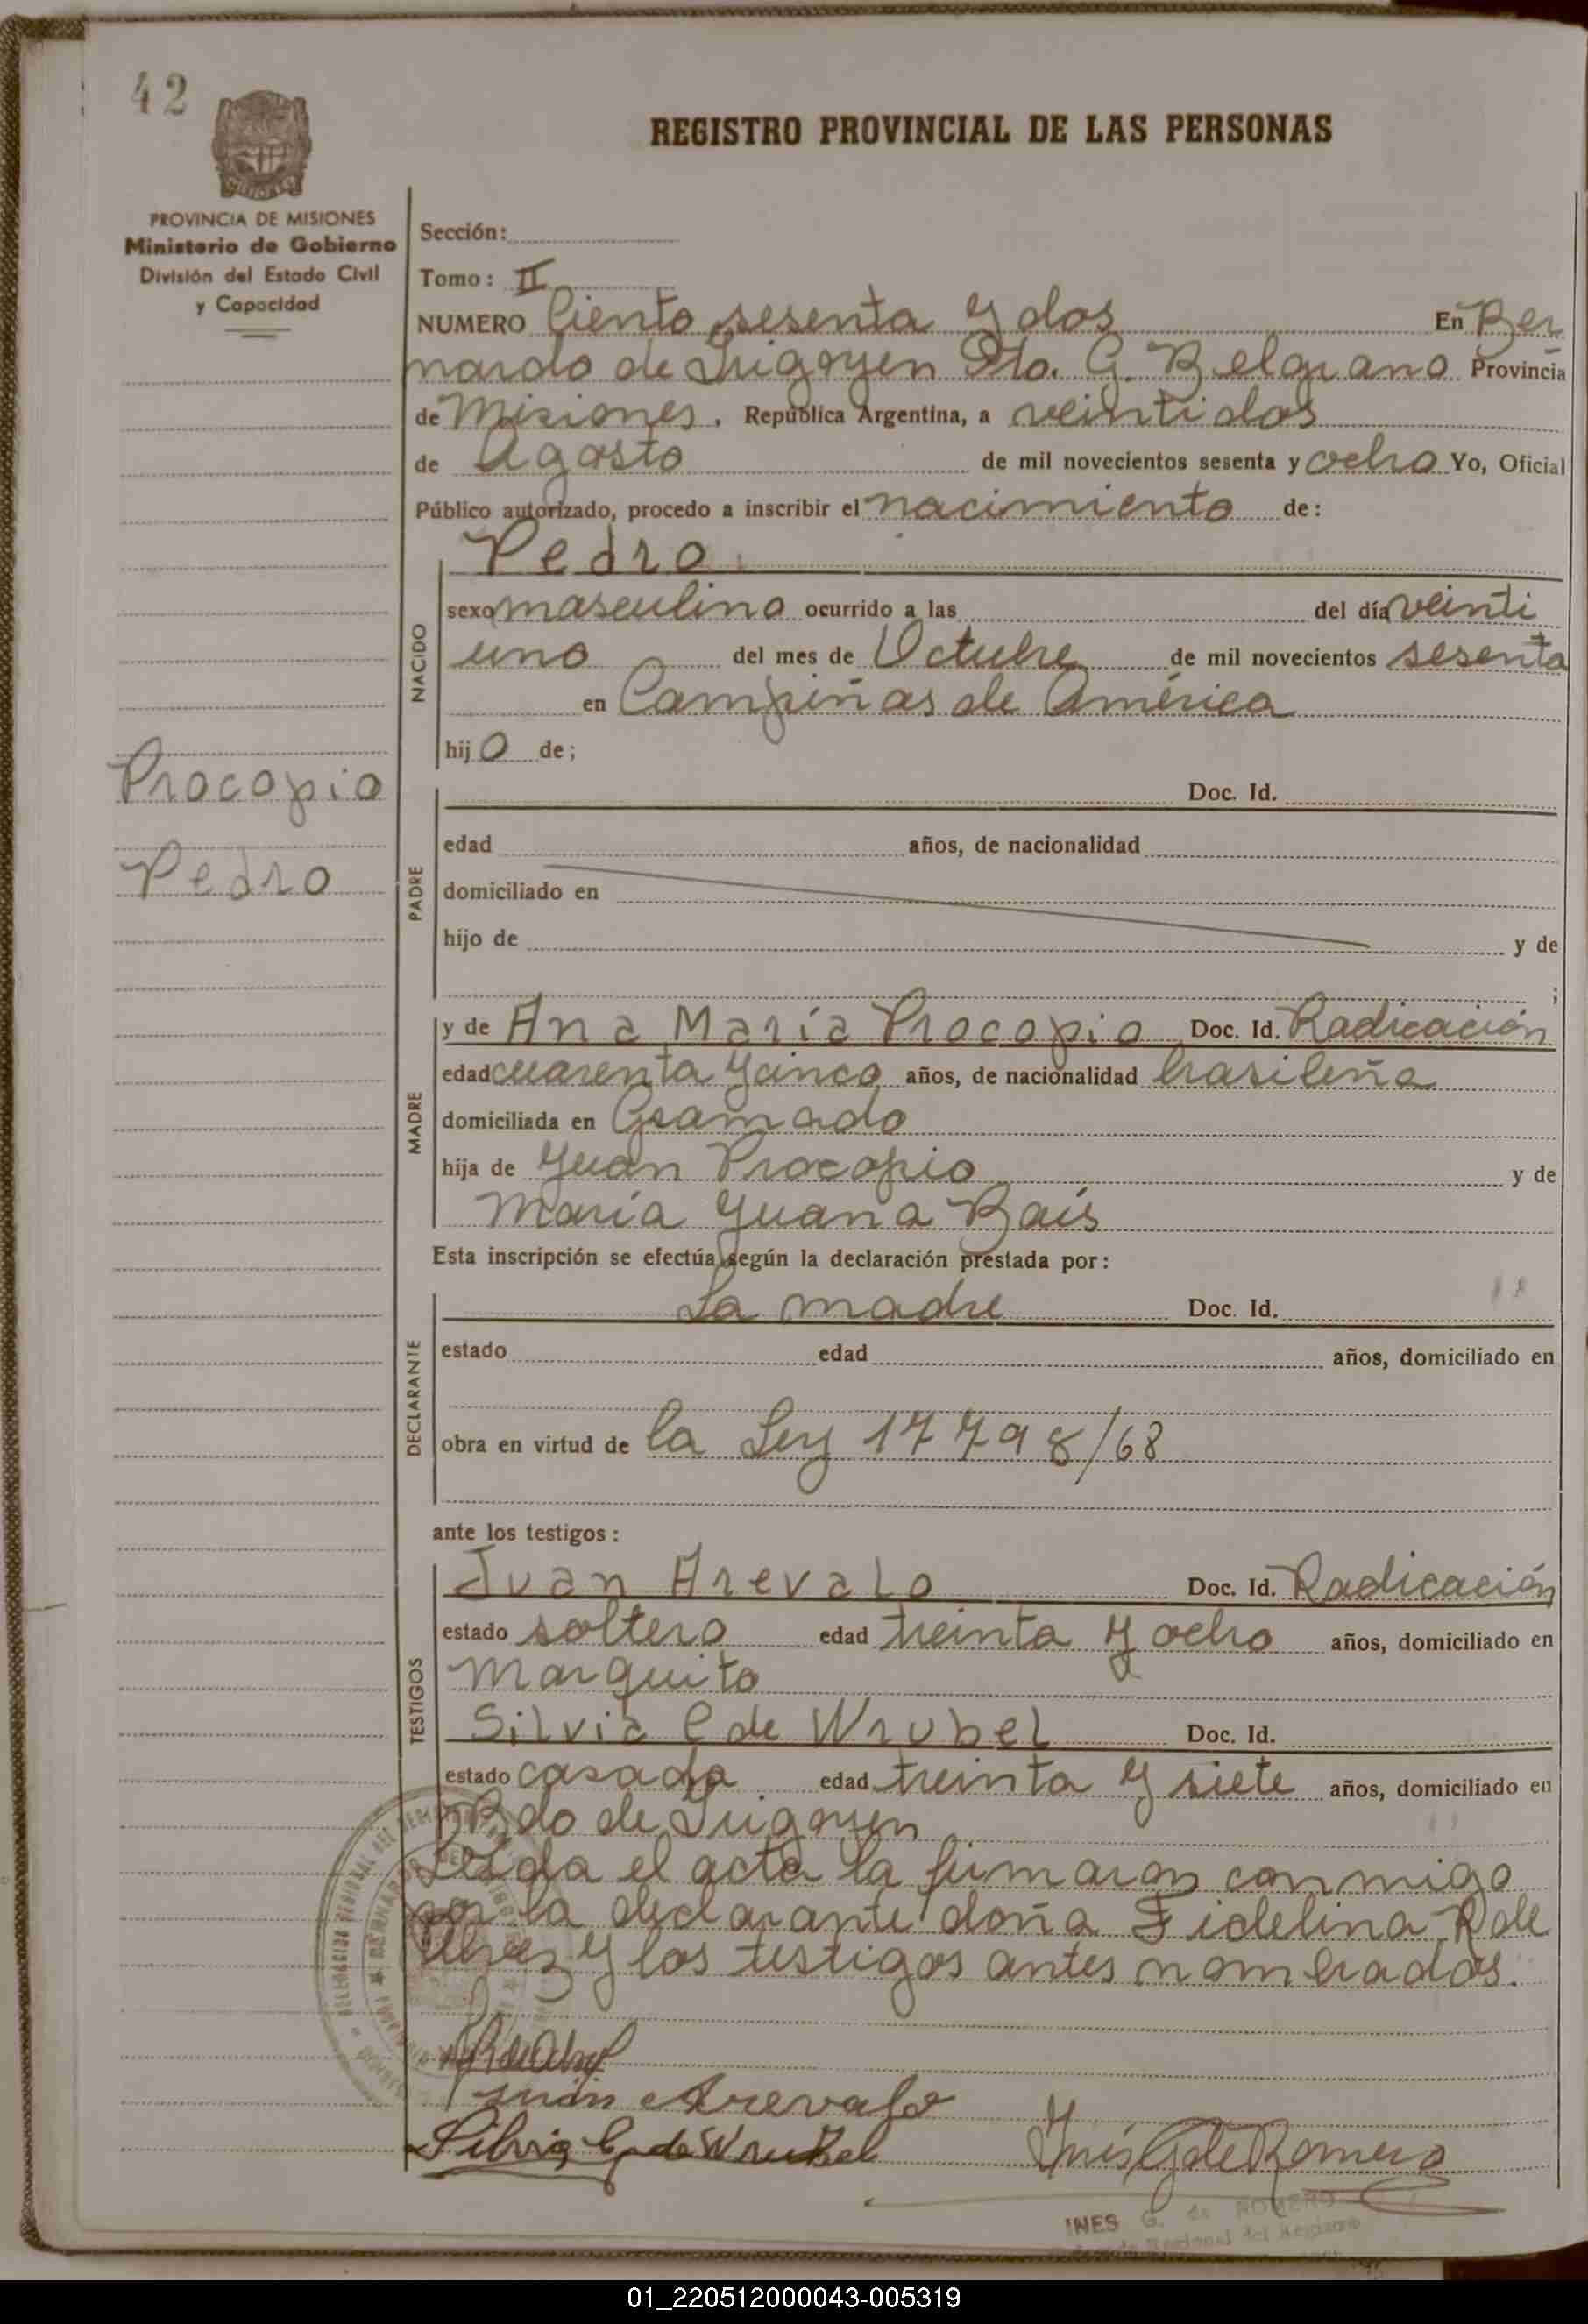 42
REGISTRO PROVINCIAL DE LAS PERSONAS
PROVINCIA DE MISIONES
Ministerio de Gobierno
División del Estado Civil
y Capacidad
Sección:
Tomo: II
NUMERO Ciento sesenta y dos En Ber
nardo de Irigoyen Dto. G. Belgrano Provincia
de Misiones. República Argentina, a veintidos
de Agosto de mil novecientos sesenta y ocho Yo, Oficial
Público autorizado, procedo a inscribir el nacimiento de:
Pedro
NACIDO
sexo masculino ocurrido a las del día veinti
uno del mes de Octubre de mil novecientos sesenta
en Campiñas de América
hijo de;
Procopio
Pedro
PADRE
Doc. Id.
edad años, de nacionalidad
domiciliado en
hijo de y de
;
MADRE
y de Ana María Procopio Doc. Id. Radicación
edad cuarenta y cinco años, de nacionalidad brasileña
domiciliada en Gramado
hija de Juan Procopio y de
María Juana Bais
Esta inscripción se efectúa según la declaración prestada por:
DECLARANTE
La madre Doc. Id.
estado edad años, domiciliado en
obra en virtud de la Ley 17798/68
ante los testigos:
TESTIGOS
Juan Arevalo Doc. Id. Radicación
estado soltero edad treinta y ocho años, domiciliado en
Marquito
Silvia C de Wrubel Doc. Id.
estado casada edad treinta y siete años, domiciliado en
Bdo de Irigoyen
Leída el acta la firmaron conmigo
por la declarante doña Fidelina R de
y los testigos antes nombrados.
Juan Arevalo
Silvia C. de Wrubel
Inés G de Romero
INES G. de ROMERO
01_220512000043-005319